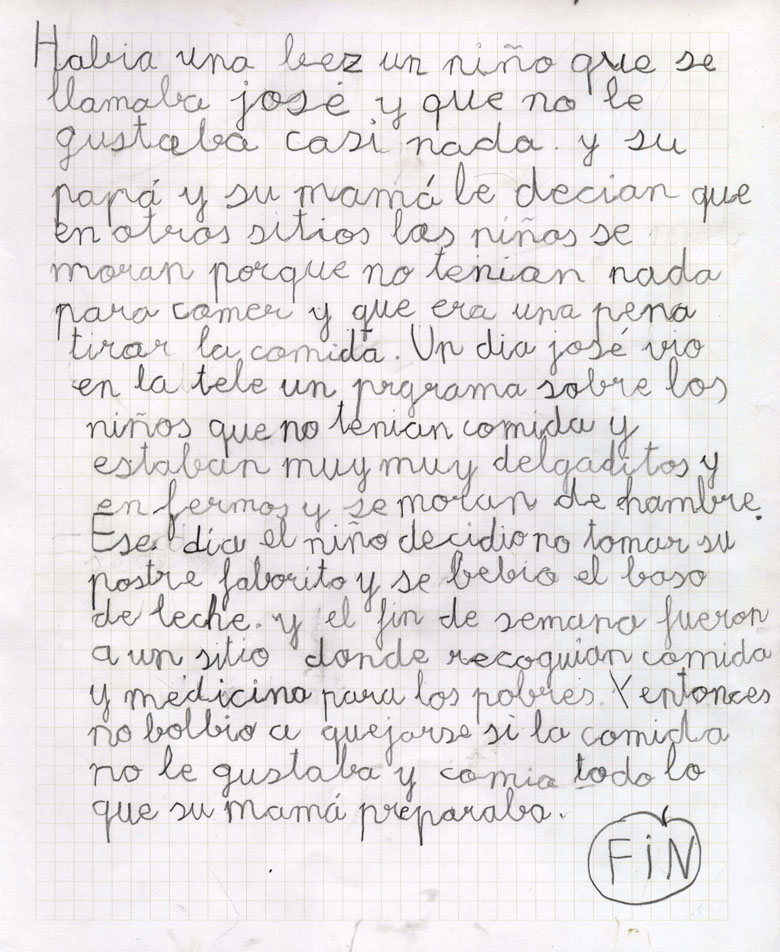 Habia una bez un niño que se
llamaba josé y que no le
gustaba casi nada. y su
papá y su mamá le decian que
en otros sitios los niños se
moran porque no tenian nada
para comer y que era una pena
tirar la comida. Un dia josé vio
en la tele un prgrama sobre los
niños que no tenian comida y
estaban muy muy delgaditos y
enfermos y se moran de hambre.
Ese día el niño decidio no tomar su
postre faborito y se bebio el baso
de leche. y el fin de semana fueron
a un sitio donde recoguian comida
y medicina para los pobres. Y entonces
no bolbio a quejarse si la comida
no le gustaba y comia todo lo
que su mamá preparaba.
FiN